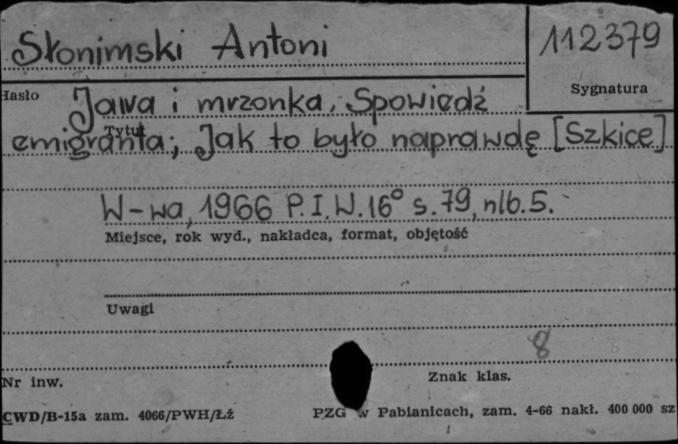 Słonimski Antoni
112379
Hasło
Sygnatura
Jawa i mrzonka, Spowiedź
Tytuł
emigranta; Jak to było naprawdę [Szkice]
W-wa, 1966 P.I.W. 16° s. 79, nlb. 5.
Miejsce, rok wyd., nakładca, format, objętość
Uwagi
8
Nr inw.
Znak klas.
CWD/B-15a zam. 4066/PWH/Łż
PZG w Pabianicach, zam. 4-66 nakł. 400 000 sz